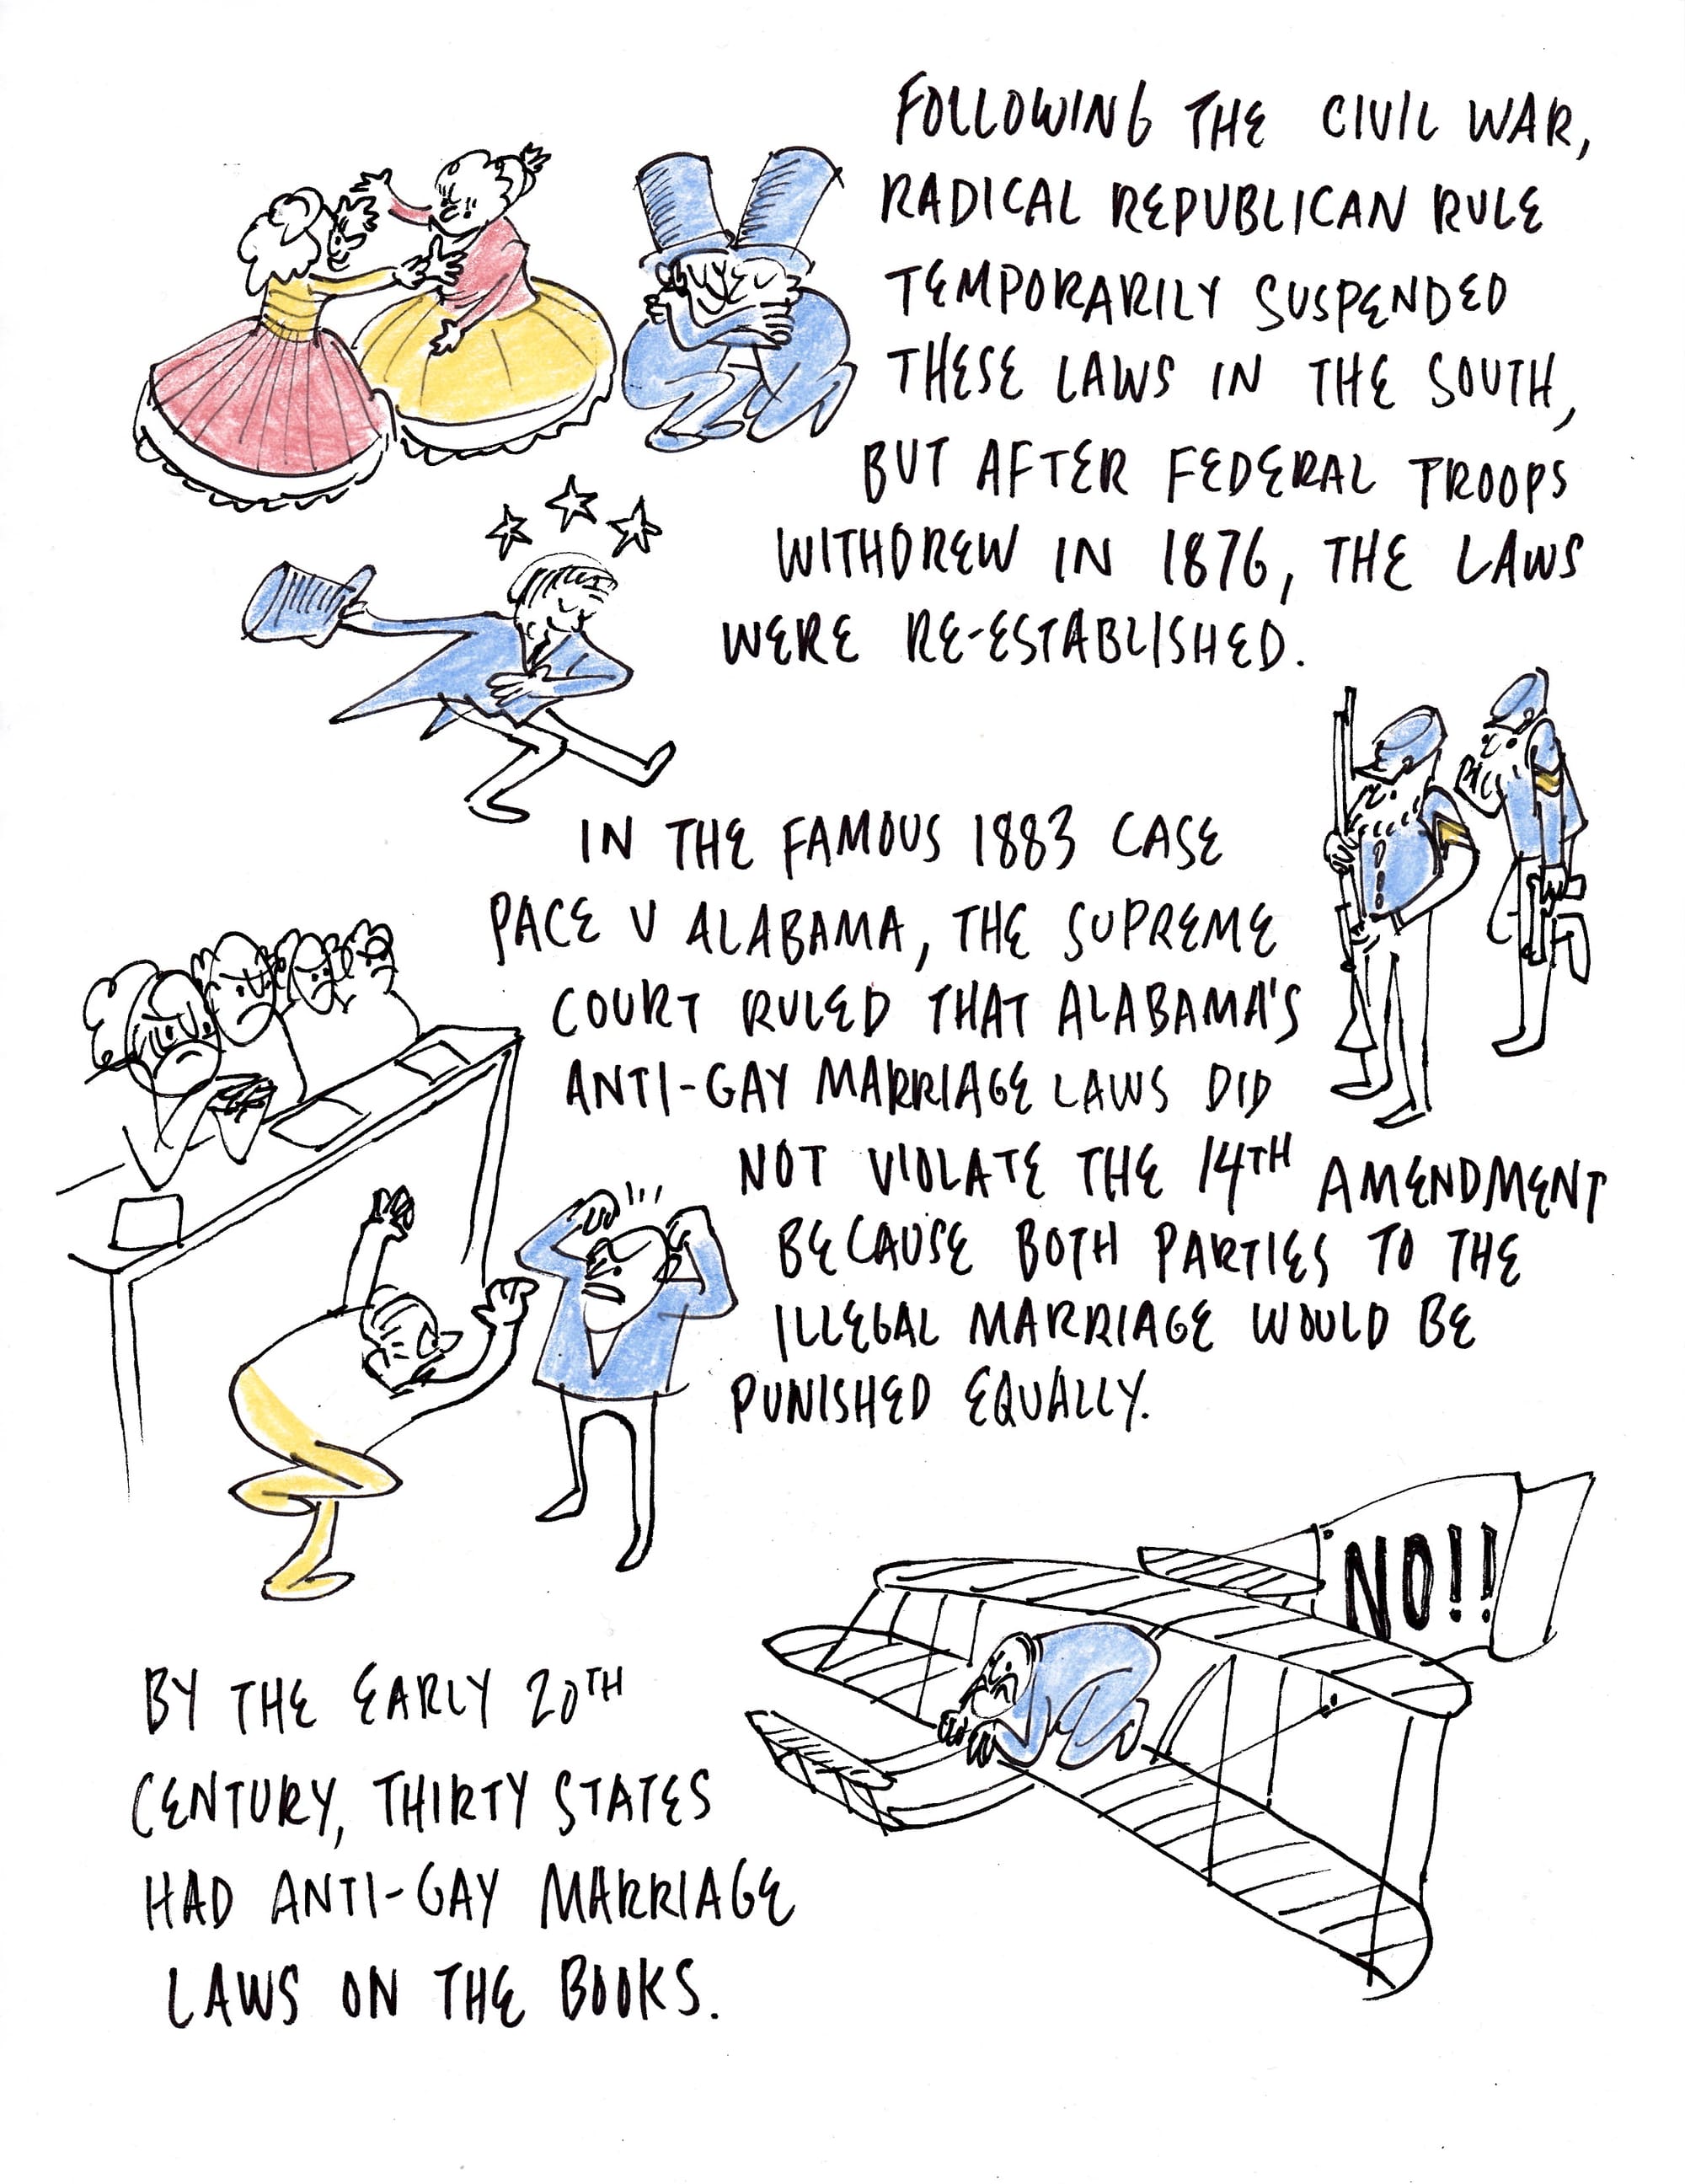 FOLLOWING THE CIVIL WAR,
RADICAL REPUBLICAN RULE
TEMPORARILY SUSPENDED
THESE LAWS IN THE SOUTH,
BUT AFTER FEDERAL TROOPS
WITHDREW IN 1876, THE LAWS
WERE RE-ESTABLISHED.
IN THE FAMOUS 1883 CASE
PACE V ALABAMA, THE SUPREME
COURT RULED THAT ALABAMA'S
ANTI-GAY MARRIAGE LAWS DID
NOT VIOLATE THE 14TH AMENDMENT
BECAUSE BOTH PARTIES TO THE
ILLEGAL MARRIAGE WOULD BE
PUNISHED EQUALLY.
NO!!
BY THE EARLY 20TH
CENTURY, THIRTY STATES
HAD ANTI-GAY MARRIAGE
LAWS ON THE BOOKS.